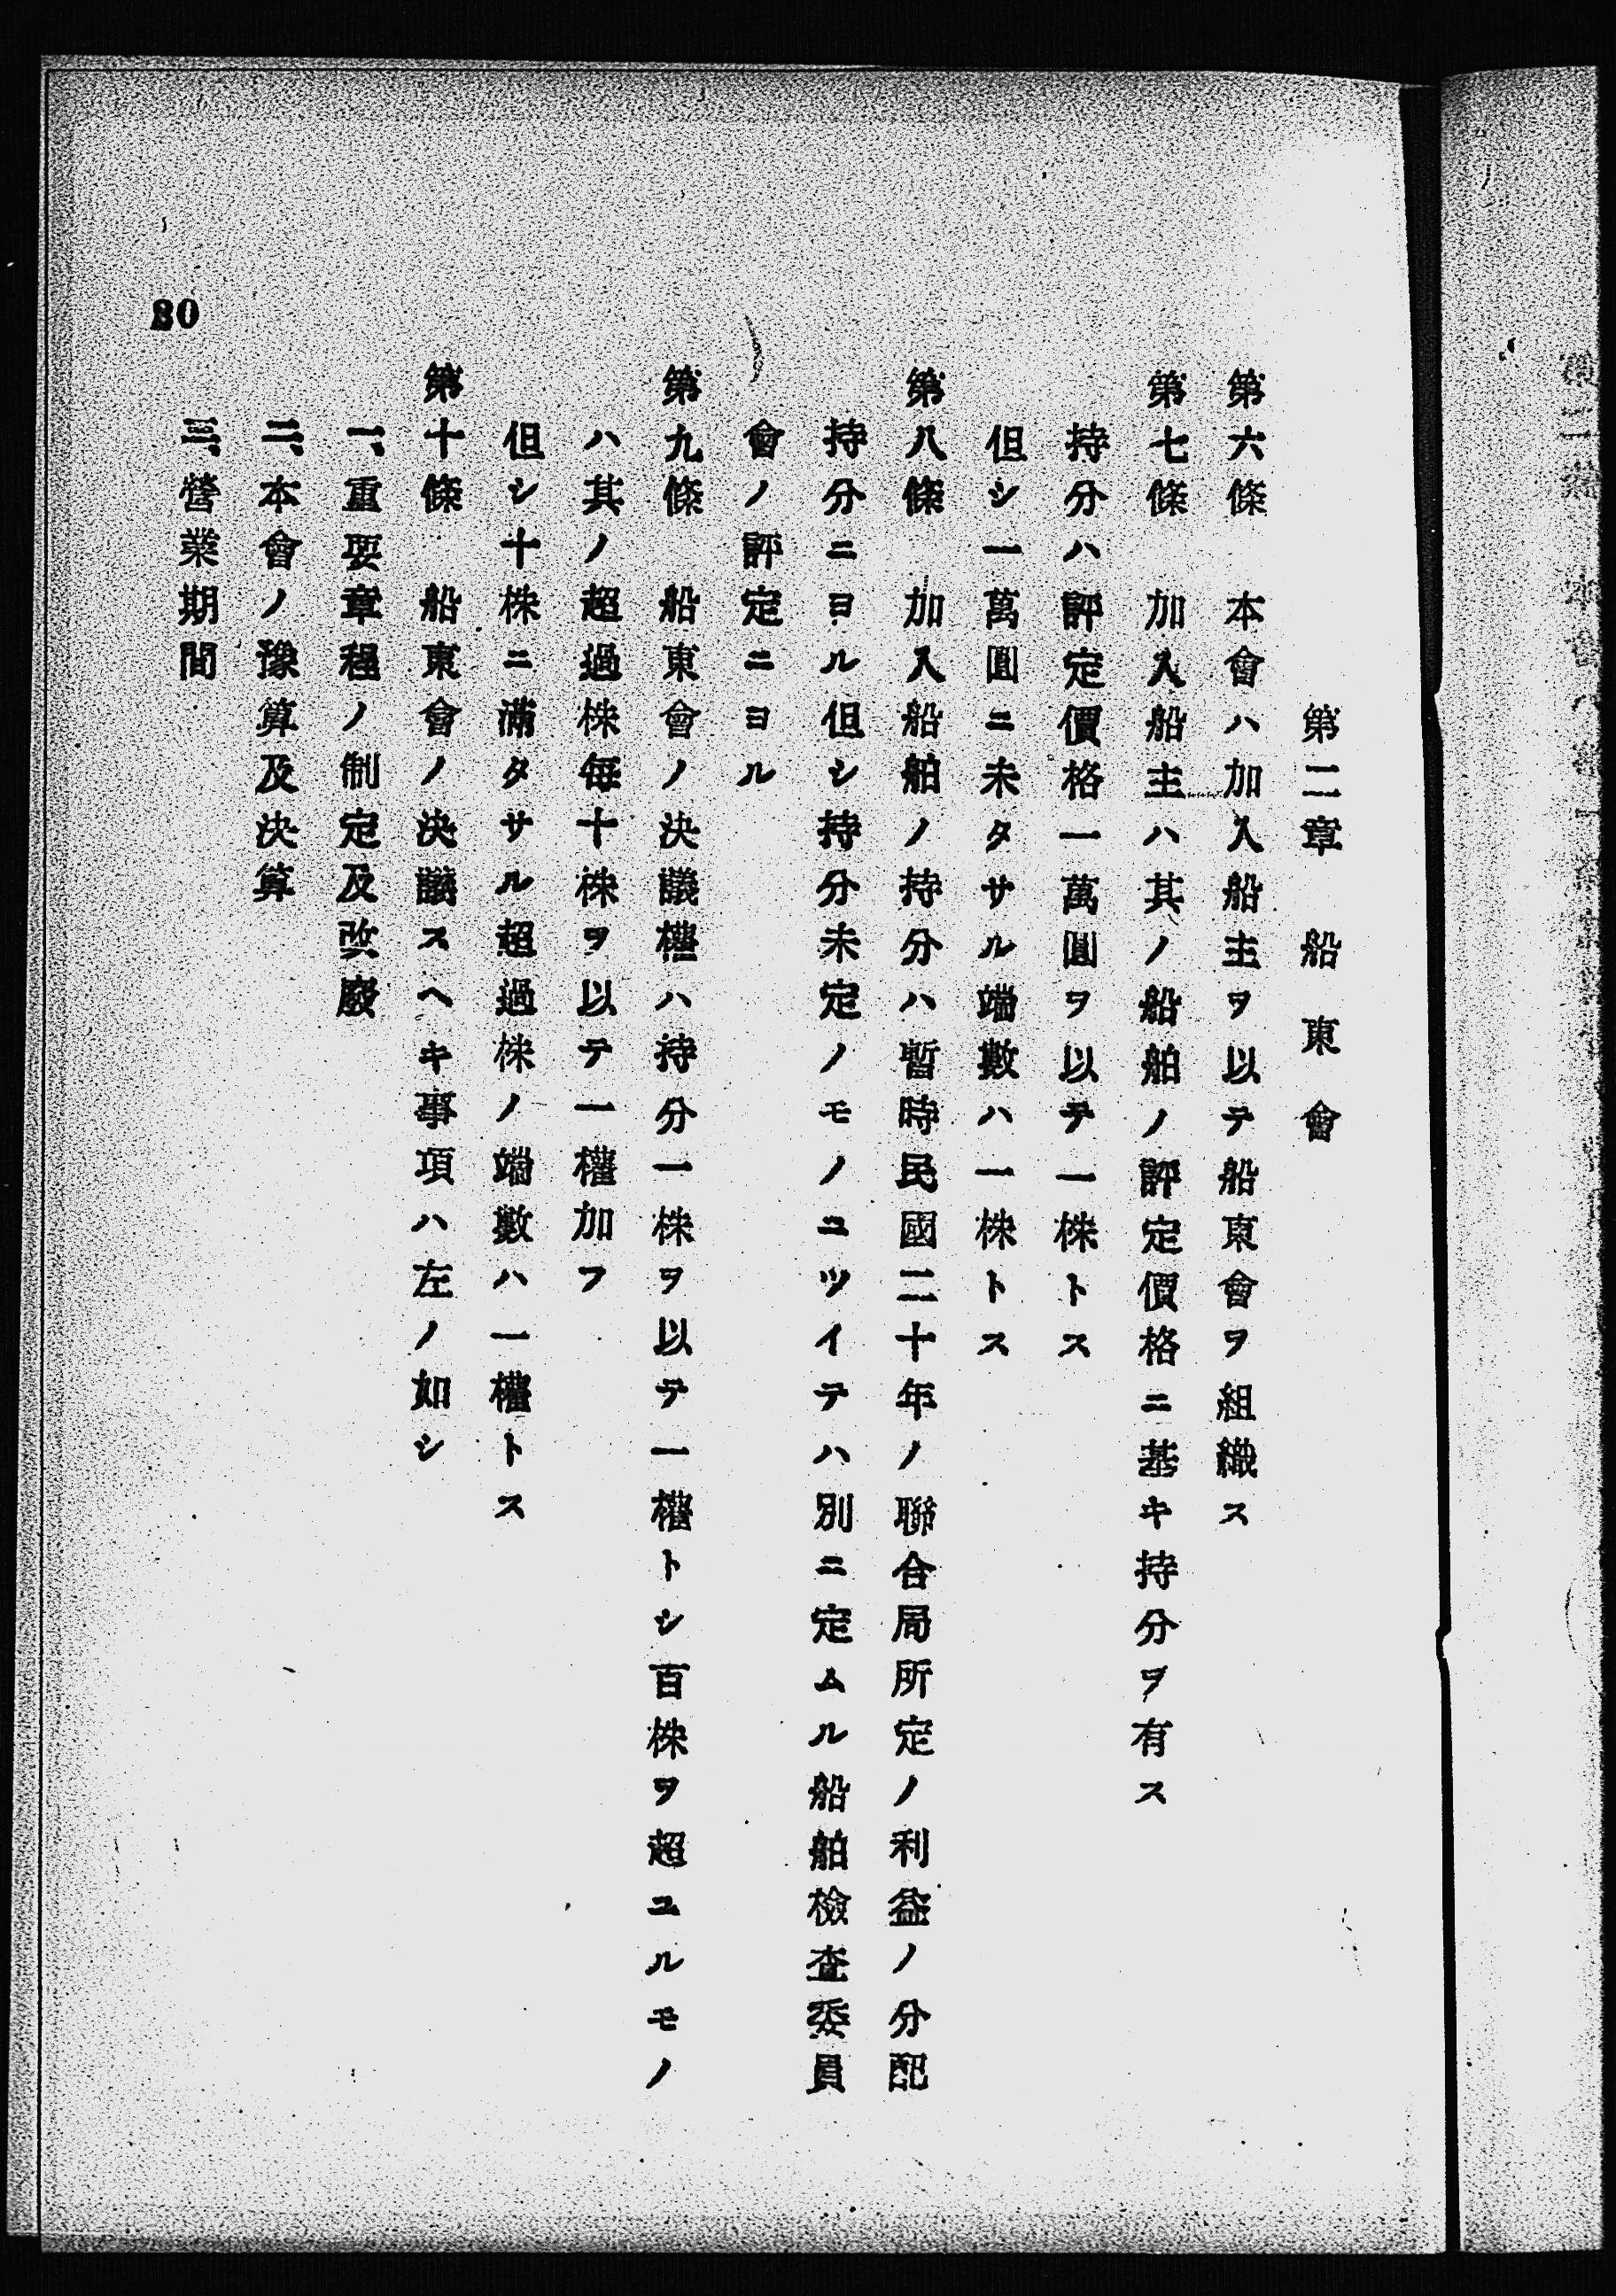 第二章　船東會
第六條　本會ハ加入船主ヲ以テ船東會ヲ組織ス
第七條　加入船主ハ其ノ船舶ノ評定價格ニ基キ持分ヲ有ス
持分ハ評定價格一萬圓ヲ以テ一株トス
但シ一萬圓ニ未タサル端數ハ一株トス
第八條　加入船舶ノ持分ハ暫時民國二十年ノ聯合局所定ノ利益ノ分配
持分ニヨル但シ持分未定ノモノニツイテハ別ニ定ムル船舶檢査委員
會ノ評定ニヨル
第九條　船東會ノ決議權ハ持分一株ヲ以テ一權トシ百株ヲ超ユルモノ
ハ其ノ超過株每十株ヲ以テ一權加フ
但シ十株ニ滿タサル超過株ノ端數ハ一權トス
第十條　船東會ノ決議スヘキ事項ハ左ノ如シ
一、重要章程ノ制定及改廢
二、本會ノ豫算及決算
三、營業期間